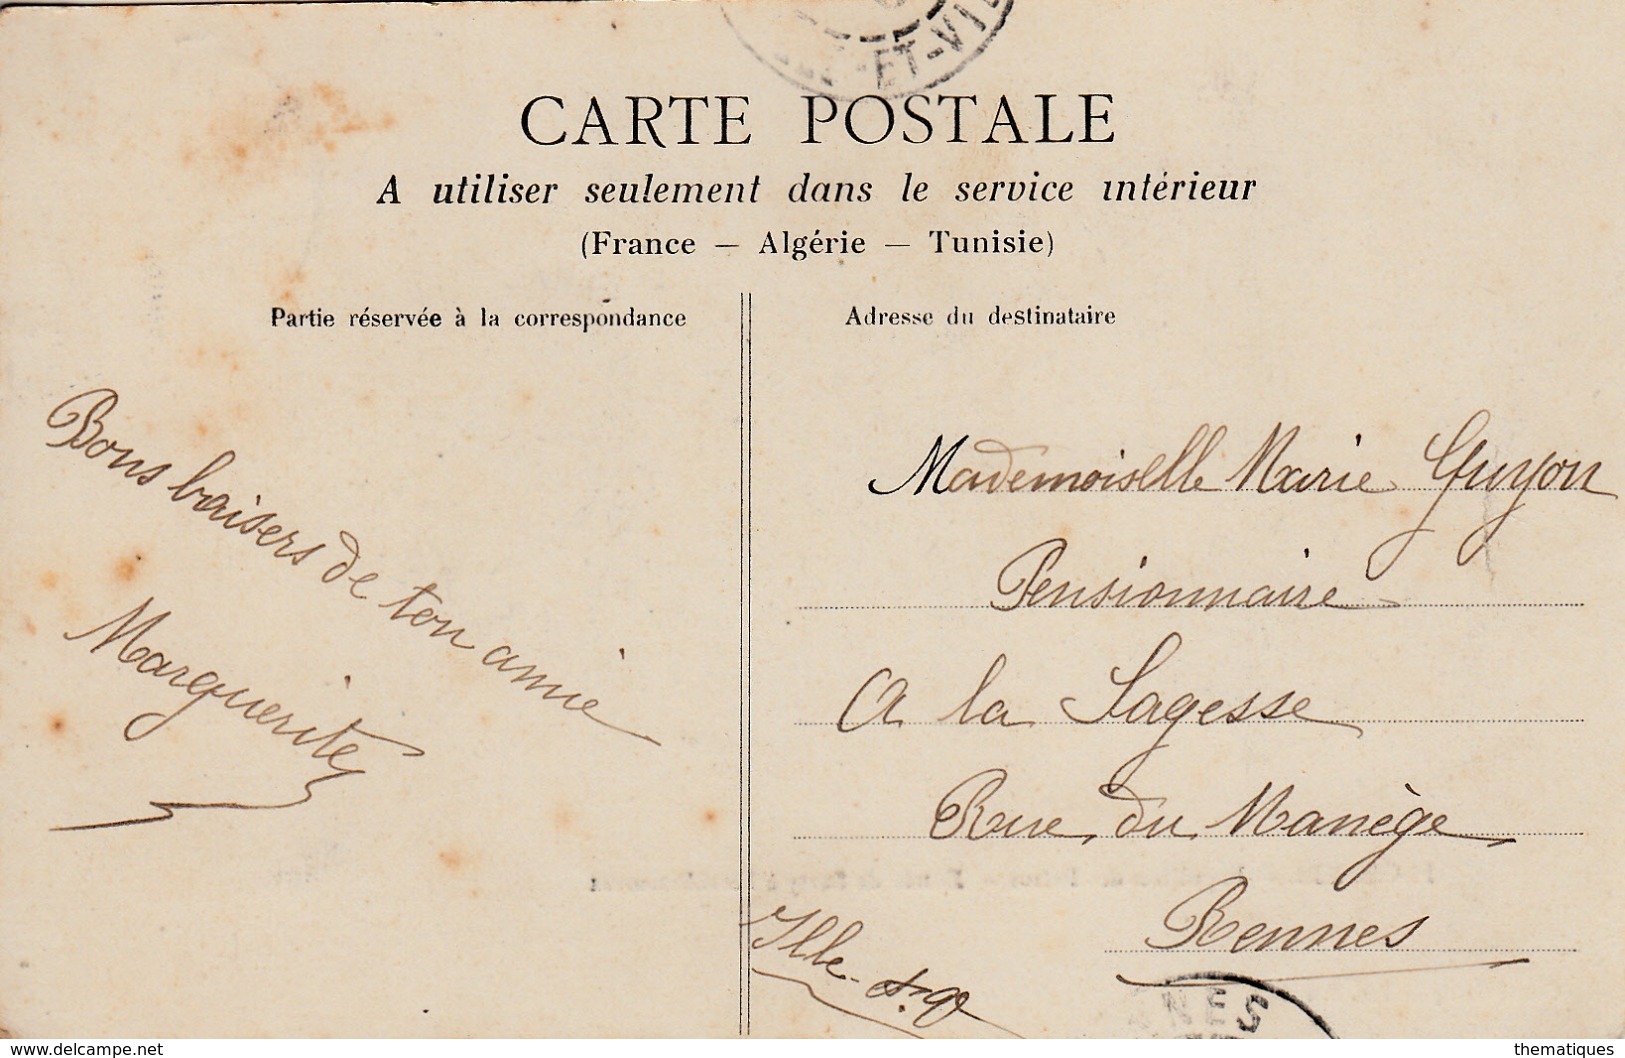 -ET-VIL
CARTE POSTALE
A utiliser seulement dans le service intérieur
(France — Algérie — Tunisie)
Partie réservée à la correspondance
Adresse du destinataire
Bons baisers de ton amie
Marguerite
Mademoiselle Marie Guyon
Pensionnaire
A la Sagesse
Rue du Manège
Rennes
Ille-
NES
www.delcampe.net
thematiques